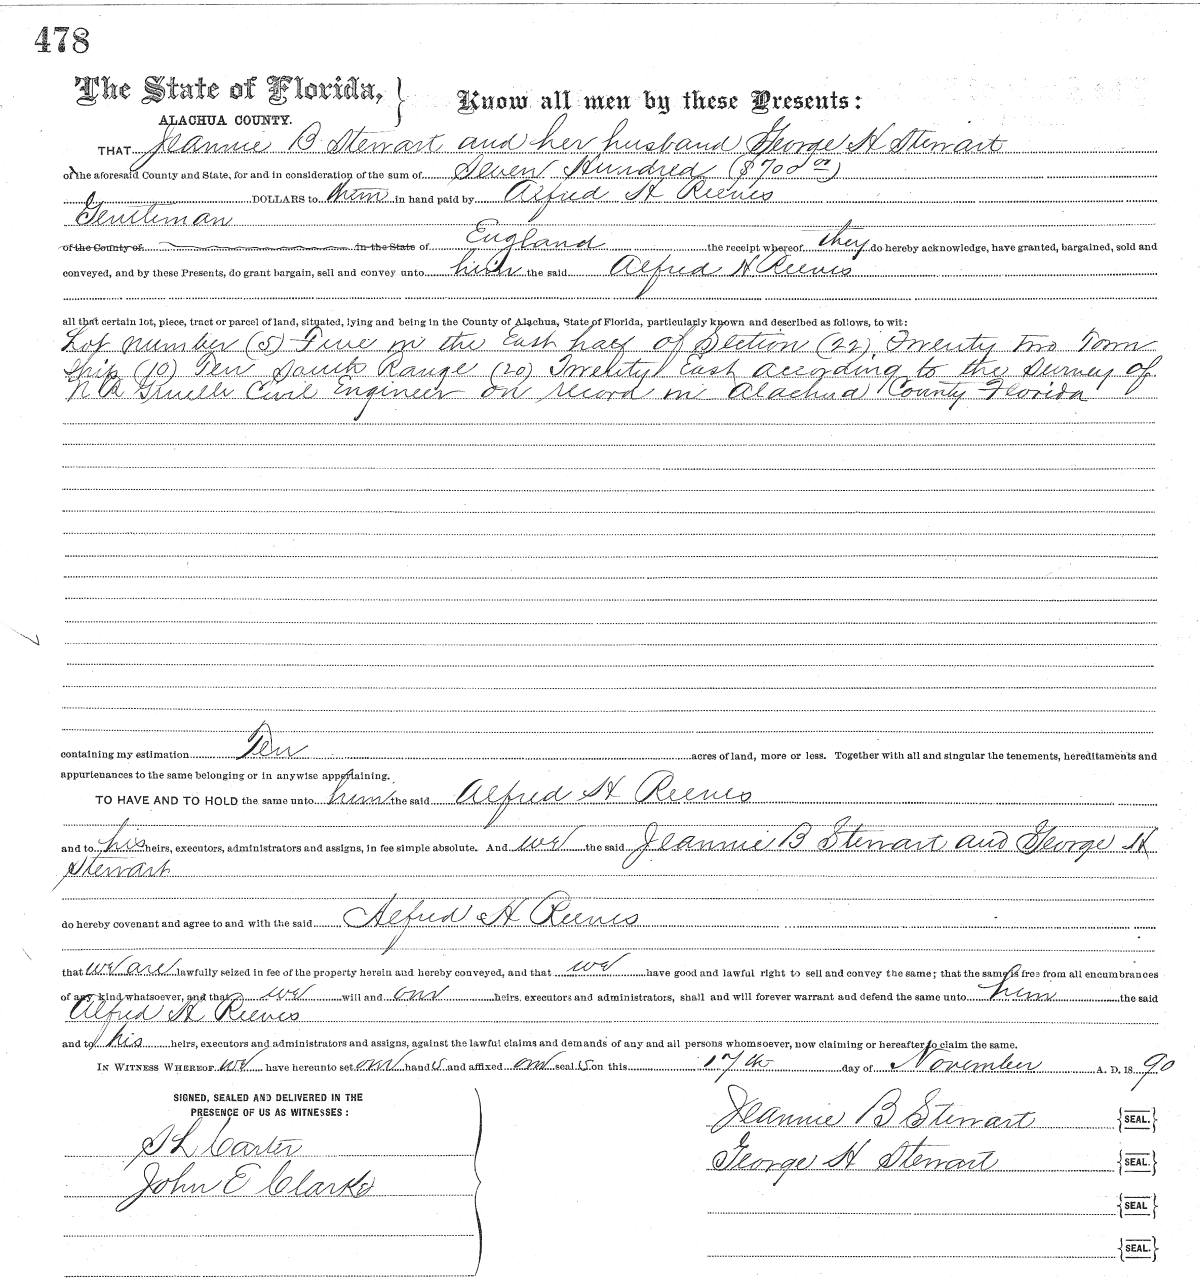 478
The State of Florida, } Know all men by these Presents:
ALACHUA COUNTY.
THAT Jeannie B Stewart and her husband George H Stewart
of the aforesaid County and State, for and in consideration of the sum of Seven Hundred ($700 00)
DOLLARS to them in hand paid by Alfred H Reeves
Gentleman
of the County of in the State of England the receipt whereof they do hereby acknowledge, have granted, bargained, sold and
conveyed, and by these Presents, do grant bargain, sell and convey unto him the said Alfred H Reeves
all that certain lot, piece, tract or parcel of land, situated, lying and being in the County of Alachua, State of Florida, particularly known and described as follows, to wit:
Lot number (5) Five in the East half of Section (22) Twenty two Town
ship (10) Ten South Range (20) Twenty East according to the Survey of
Civil Engineer on record in Alachua County Florida
containing my estimation Ten acres of land, more or less. Together with all and singular the tenements, hereditaments and
appurtenances to the same belonging or in anywise appertaining.
TO HAVE AND TO HOLD the same unto him the said Alfred H Reeves
and to his heirs, executors, administrators and assigns, in fee simple absolute. And we the said Jeannie B Stewart and George H
Stewart
do hereby covenant and agree to and with the said Alfred H Reeves
that we are lawfully seized in fee of the property herein and hereby conveyed, and that we have good and lawful right to sell and convey the same; that the same is free from all encumbrances
of any kind whatsoever, and that we will and our heirs, executors and administrators, shall and will forever warrant and defend the same unto him the said
Alfred H Reeves
and to his heirs, executors and administrators and assigns, against the lawful claims and demands of any and all persons whomsoever, now claiming or hereafter to claim the same.
IN WITNESS WHEREOF we have hereunto set our hand s and affixed our seal s on this 17th day of November A. D. 1890
SIGNED, SEALED AND DELIVERED IN THE
PRESENCE OF US AS WITNESSES:
S L Carter
John E Clarke
Jeannie B Stewart {SEAL.}
George H Stewart {SEAL.}
{SEAL}
{SEAL.}